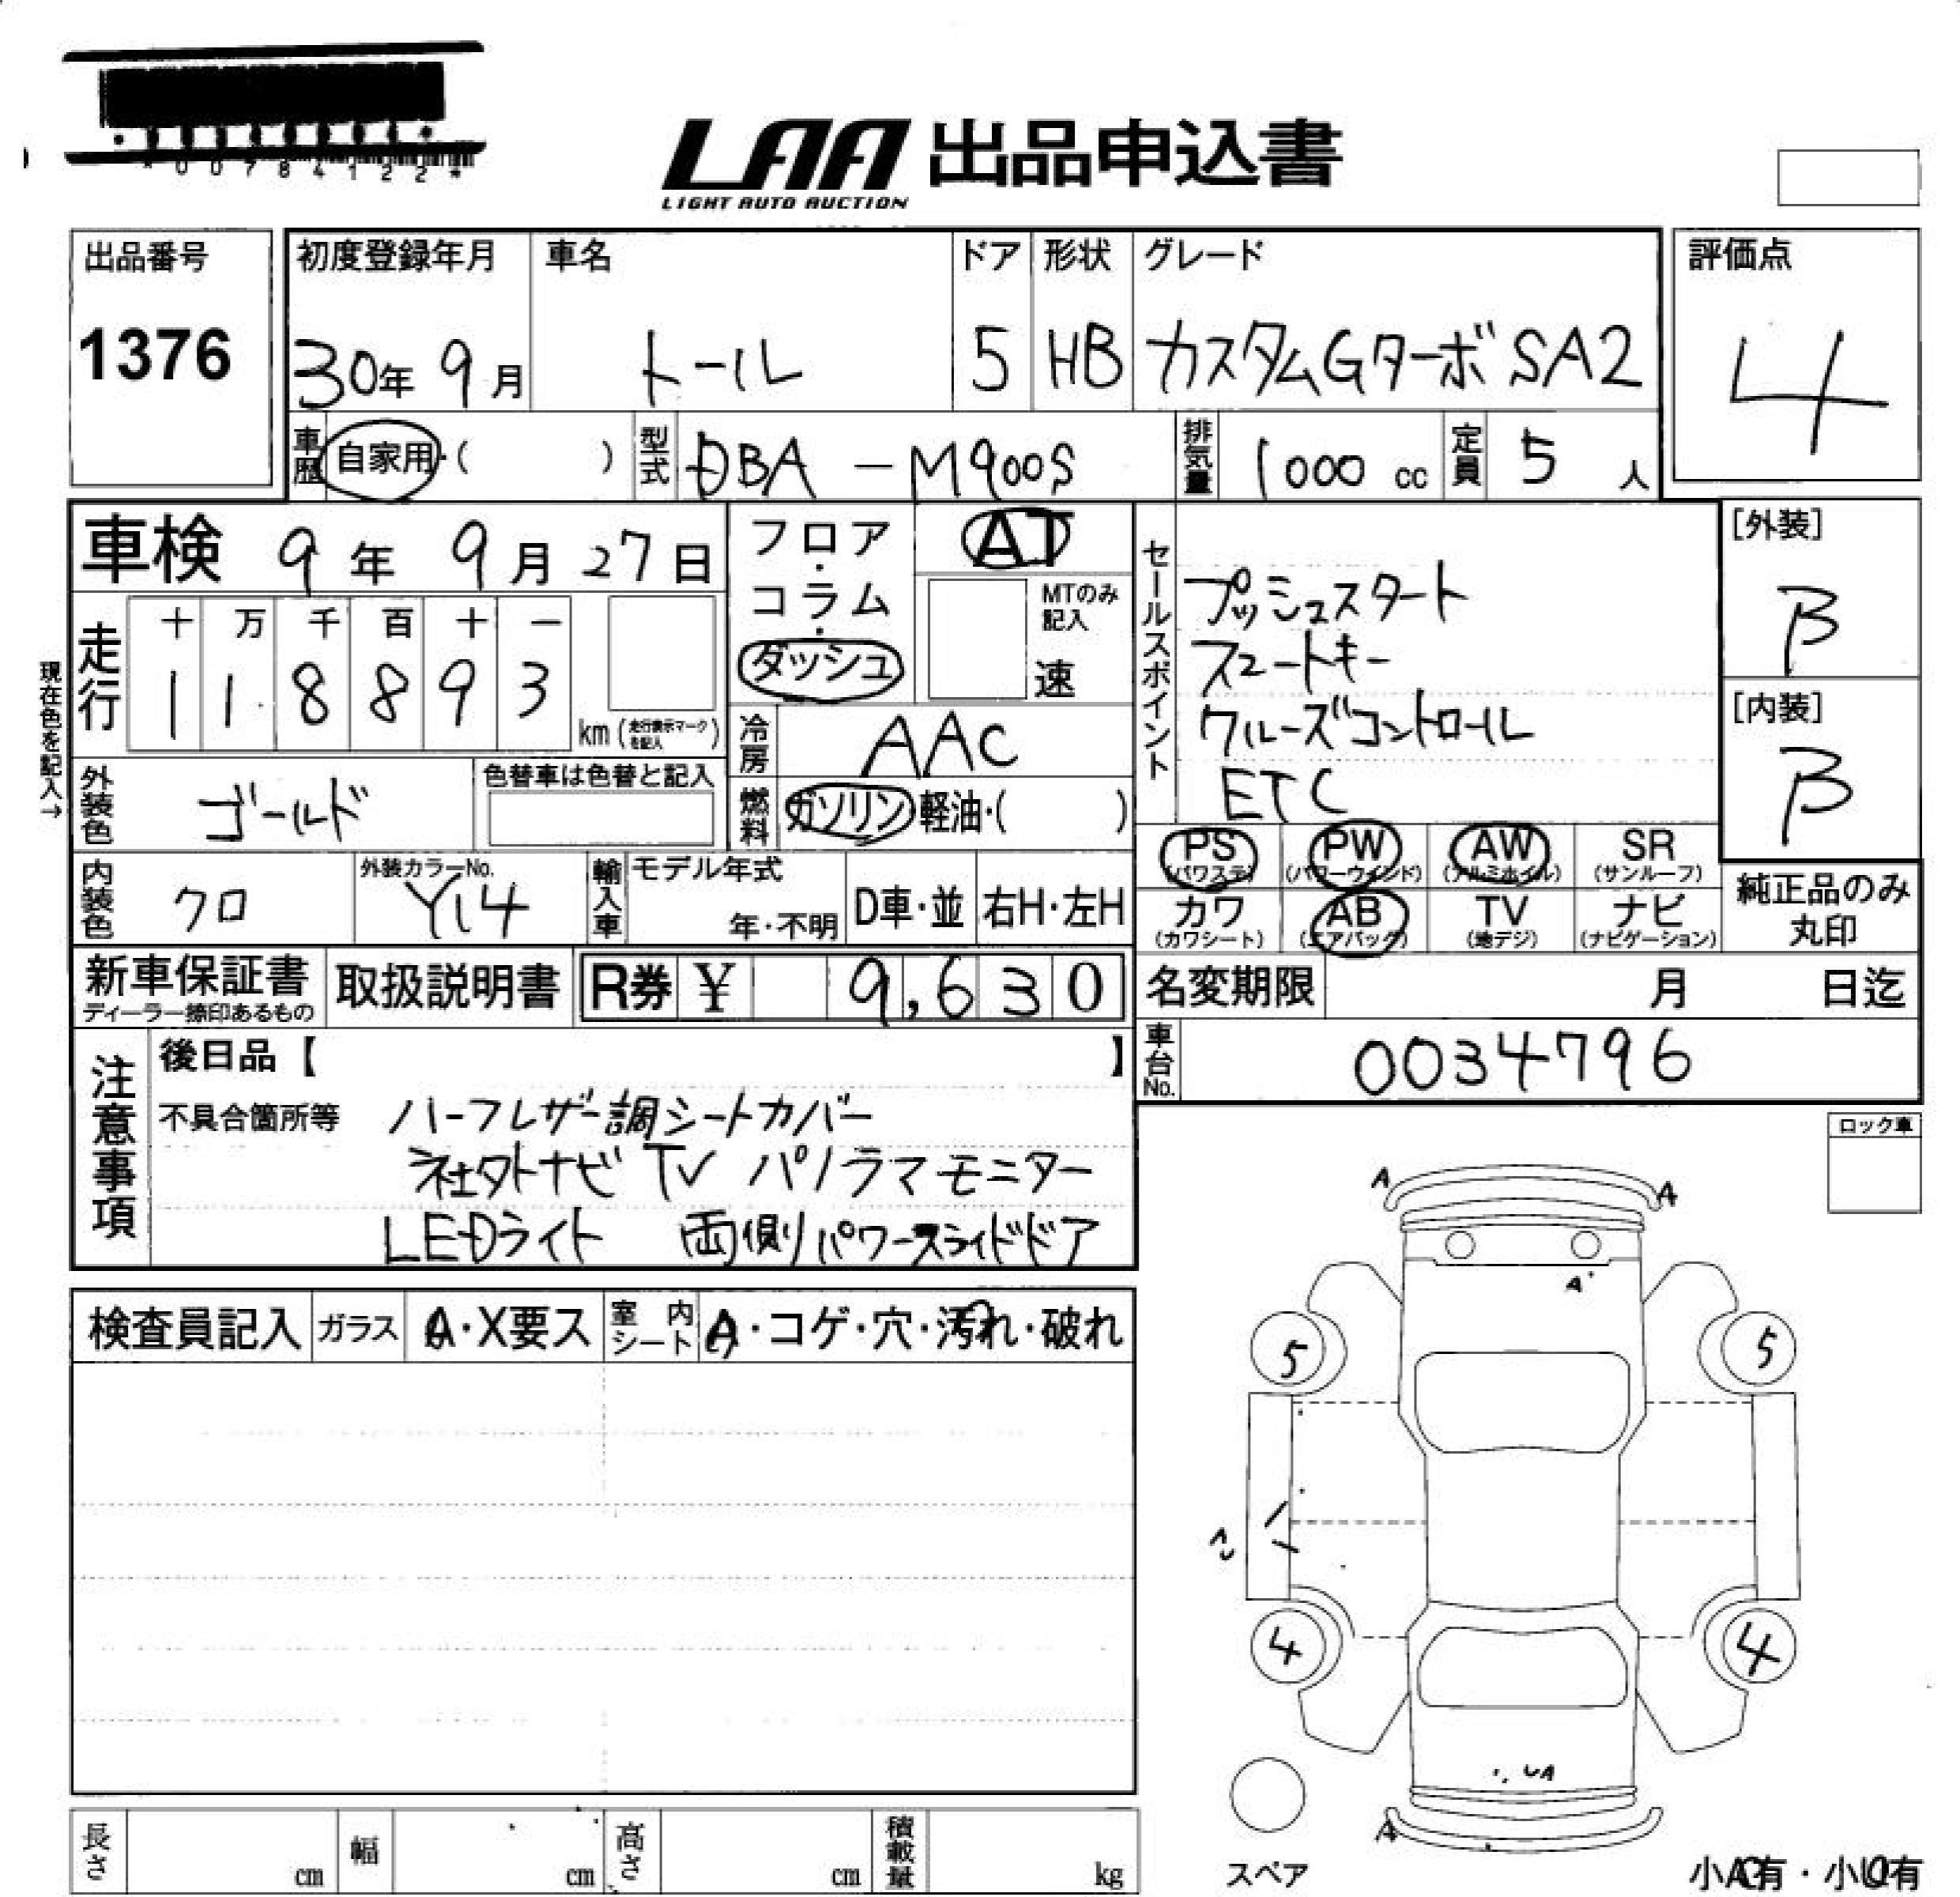 *00784122*
LAA 出品申込書
LIGHT AUTO AUCTION
出品番号
1376
初度登録年月
30年 9月
車名
トール
ドア
5
形状
HB
グレード
カスタムGターボ SA2
評価点
4
車歴 自家用・( )
型式 DBA - M900S
排気量 1000 cc
定員 5 人
車検 9年 9月 27日
フロア・コラム・ダッシュ
AT
MTのみ記入
速
セールスポイント
プッシュスタート
スマートキー
クルーズコントロール
ETC
[外装]
B
[内装]
B
現在色を記入→
走行
十 万 千 百 十 一
1 1 8 8 9 3
km (走行表示マークを記入)
冷房 AAC
外装色 ゴールド
色替車は色替と記入
燃料 ガソリン・軽油・( )
内装色 クロ
外装カラーNo.
Y14
輸入車
モデル年式
年・不明
D車・並
右H・左H
PS (パワステ)
PW (パワーウインド)
AW (アルミホイル)
SR (サンルーフ)
カワ (カワシート)
AB (エアバッグ)
TV (地デジ)
ナビ (ナビゲーション)
純正品のみ
丸印
新車保証書
ディーラー捺印あるもの
取扱説明書
R券 ¥ 9,630
名変期限 月 日迄
車台No. 0034796
注意事項
後日品【 】
不具合箇所等 ハーフレザー調シートカバー
社外ナビ TV パノラマモニター
LEDライト 両側パワースライドドア
ロック車
A A
A
5 5
検査員記入
ガラス A・X要ス
室内シート A・コゲ・穴・汚れ・破れ
4 4
UA
A
スペア
長さ cm
幅 cm
高さ cm
積載量 kg
小AC有・小U有